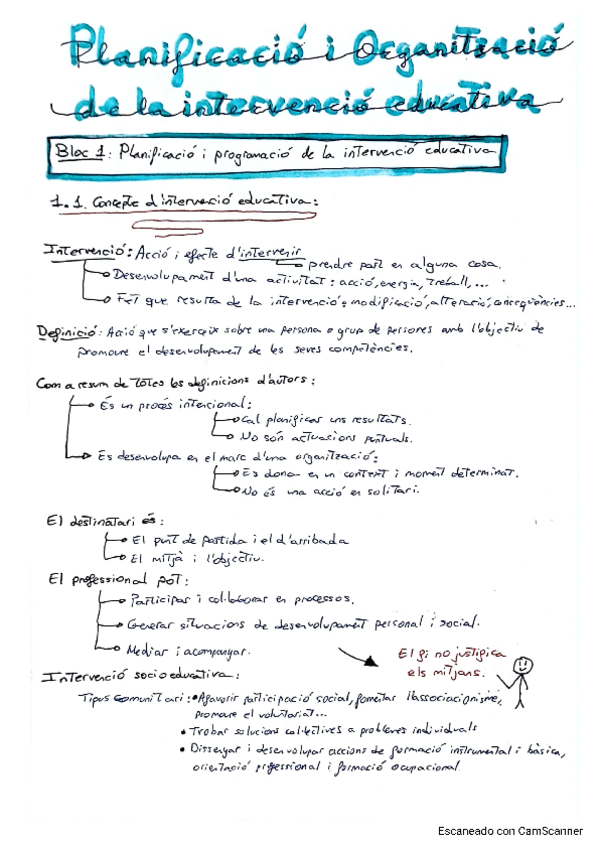 Planificació i Organització
de la intervenció educativa
Bloc 1: Planificació i programació de la intervenció educativa
1.1. Concepte d'intervenció educativa:
Intervenció: Acció i efecte d'intervenir
prendre part en alguna cosa.
Desenvolupament d'una activitat: acció, energia, treball, ...
Fet que resulta de la intervenció: modificació, alteració, conseqüències...
Definició: Acció que s'exerceix sobre una persona o grup de persones amb l'objectiu de
promoure el desenvolupament de les seves competències.
Com a resum de totes les definicions d'autors:
És un procés intencional:
Cal planificar uns resultats.
No són actuacions puntuals.
Es desenvolupa en el marc d'una organització:
Es dona en un context i moment determinat.
No és una acció en solitari.
El destinatari és:
El punt de partida i el d'arribada
El mitjà i l'objectiu.
El professional pot:
Participar i col·laborar en processos.
Generar situacions de desenvolupament personal i social.
Mediar i acompanyar.
El fi no justifica
els mitjans.
Intervenció socioeducativa:
Tipus comunitari: • Afavorir participació social, fomentar l'associacionisme,
promoure el voluntariat...
• Trobar solucions col·lectives a problemes individuals
• Dissenyar i desenvolupar accions de formació instrumental i bàsica,
orientació professional i formació ocupacional.
Escaneado con CamScanner